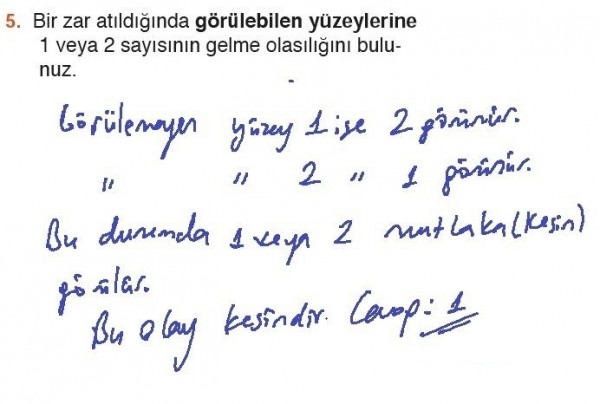 5. Bir zar atıldığında görülebilen yüzeylerine
1 veya 2 sayısının gelme olasılığını bulu-
nuz.
Görülemeyen yüzey 1 ise 2 görünür.
" " 2 " 1 görünür.
Bu durumda 1 veya 2 mutlaka (kesin)
görülür.
Bu olay kesindir. Cevap: 1